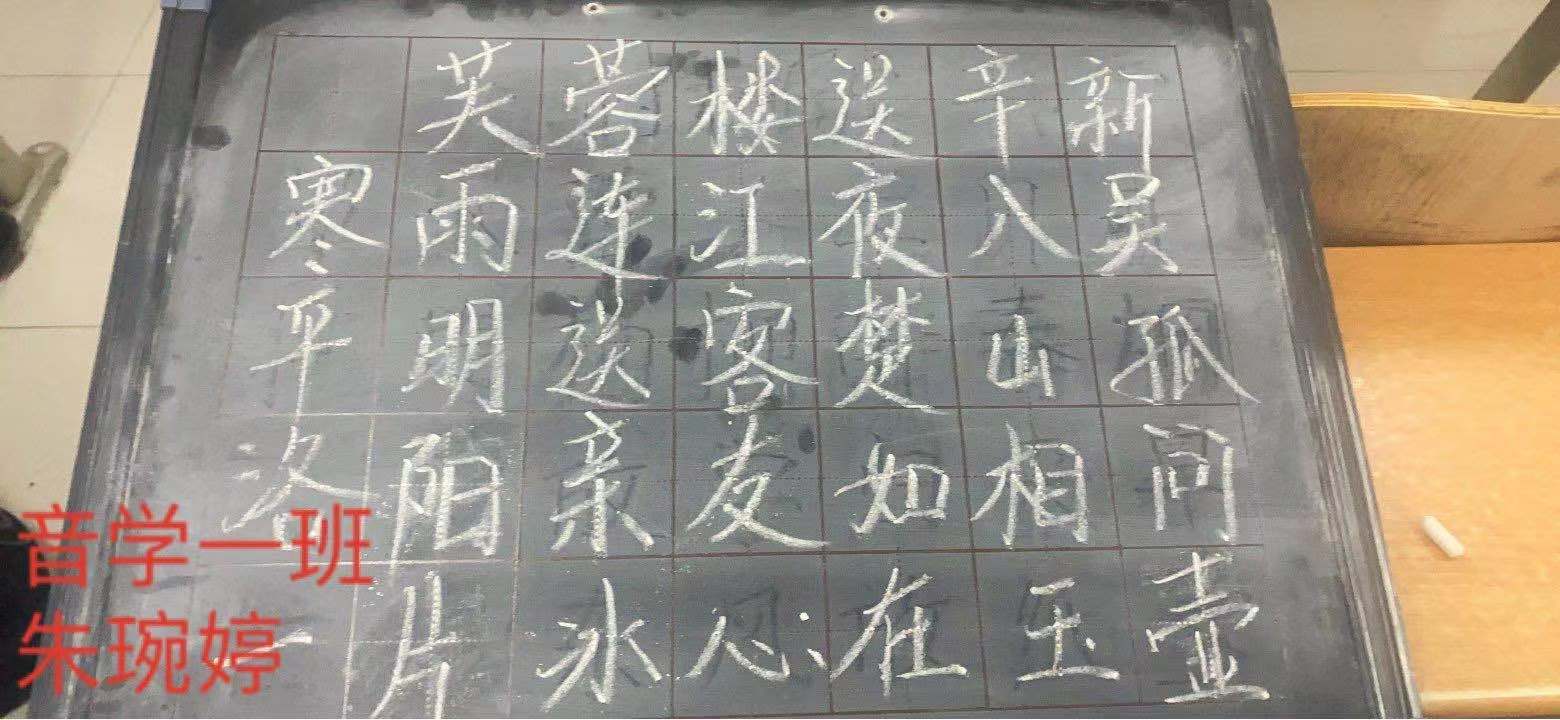 芙蓉楼送辛新
寒雨连江夜八吴
平明送客楚山孤
洛阳亲友如相问
一片冰心在玉壶
音学一班
朱琬婷